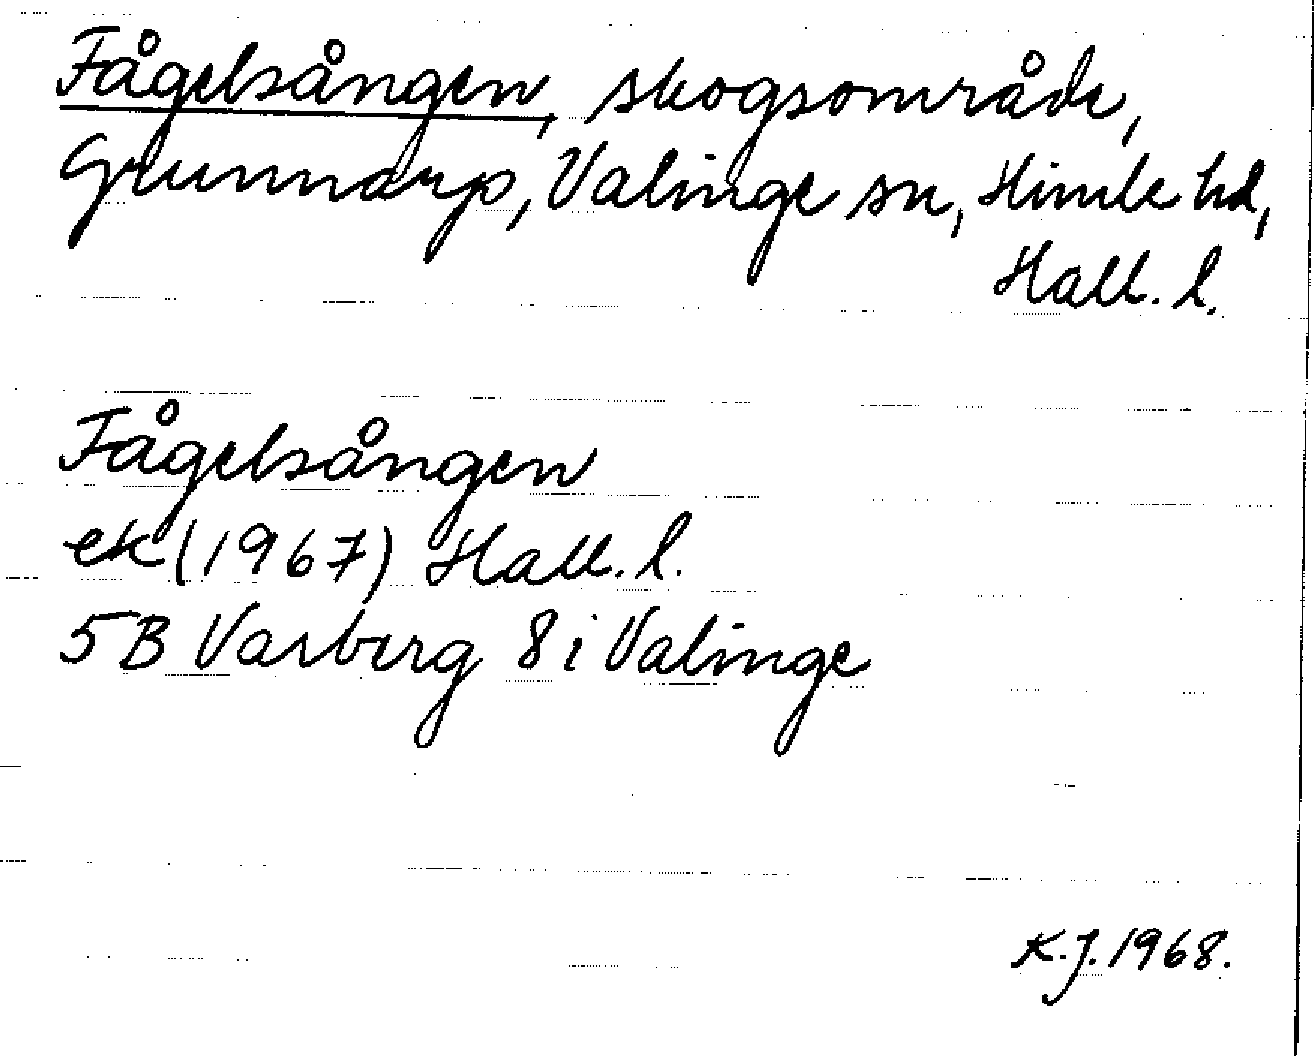 Fågelsången, skogsområde,
Grunnarp, Valinge sn, Himle hd,
Hall. l.
Fågelsången
ek (1967) Hall. l.
5B Varberg 8i Valinge
K.J. 1968.